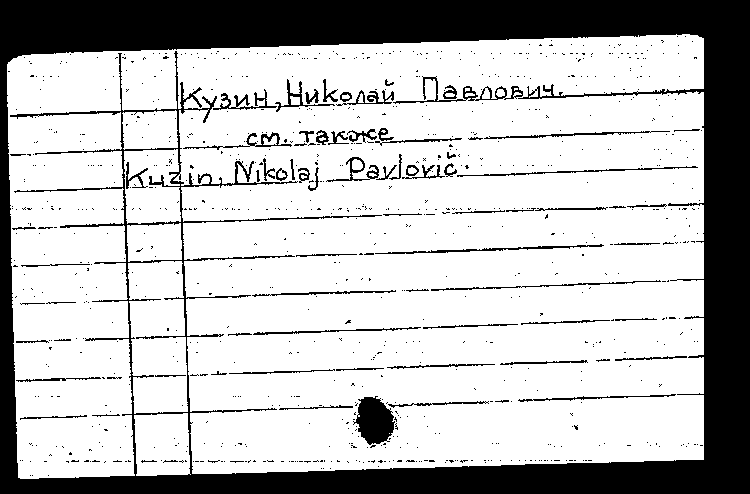 Кузин, Николай Павлович.
см. также
Kuzin, Nikolaj Pavlovič.